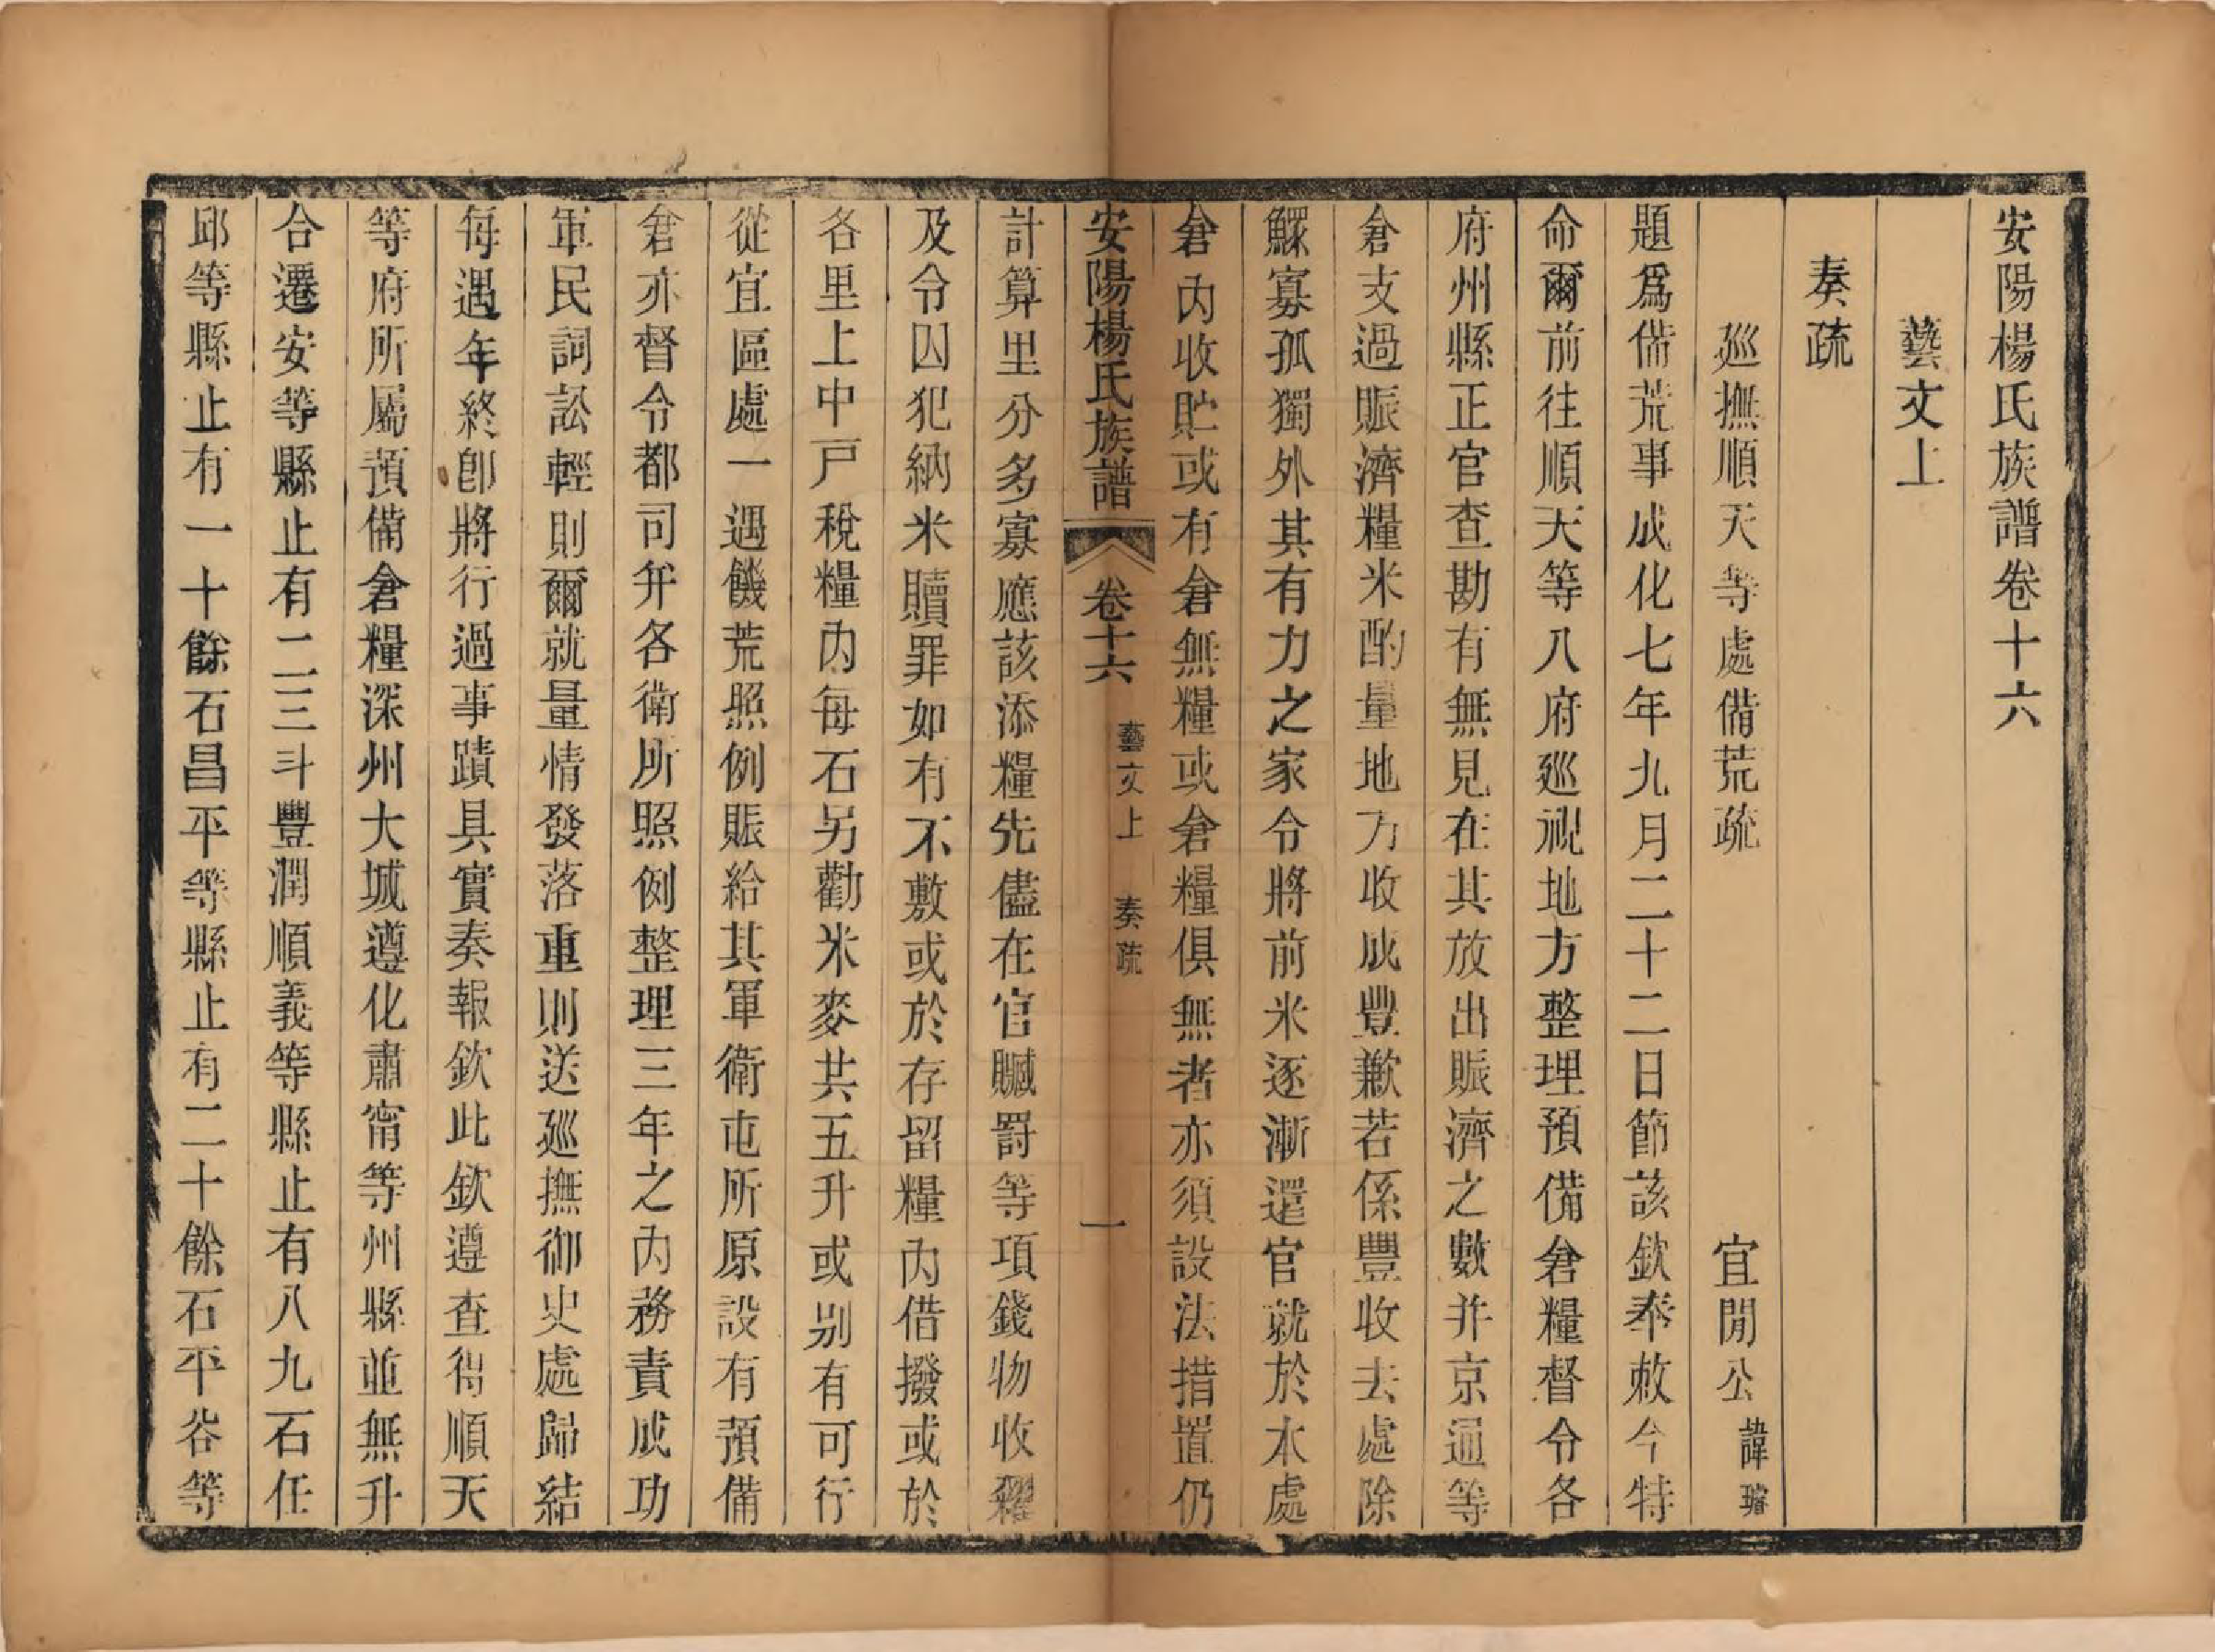 安陽楊氏族譜卷十六
藝文上
奏疏
廵撫順天等處備荒疏 宜閒公 諱璿
題爲備荒事成化七年九月二十二日節該欽奉敕今特
命爾前往順天等八府廵視地方整理預備倉糧督令各
府州縣正官查勘有無見在其放出賑濟之數并京通等
倉支過賑濟糧米酌量地方收成豐歉若係豐收去處除
鰥寡孤獨外其有力之家令將前米逐漸還官就於本處
倉內收貯或有倉無糧或倉糧俱無者亦須設法措置仍
安陽楊氏族譜 卷十六 藝文上 奏疏 一
計算里分多寡應該添糧先儘在官贓罰等項錢物收糴
及令囚犯納米贖罪如有不敷或於存留糧內借撥或於
各里上中戸稅糧內每石另勸米麥共五升或別有可行
從宜區處一遇饑荒照例賑給其軍衛屯所原設有預備
倉亦督令都司幷各衛所照例整理三年之內務責成功
軍民詞訟輕則爾就量情發落重則送廵撫御史處歸結
每遇年終卽將行過事蹟具實奏報欽此欽遵查得順天
等府所屬預備倉糧深州大城遵化肅甯等州縣並無升
合遷安等縣止有二三斗豐潤順義等縣止有八九石任
邱等縣止有一十餘石昌平等縣止有二十餘石平谷等